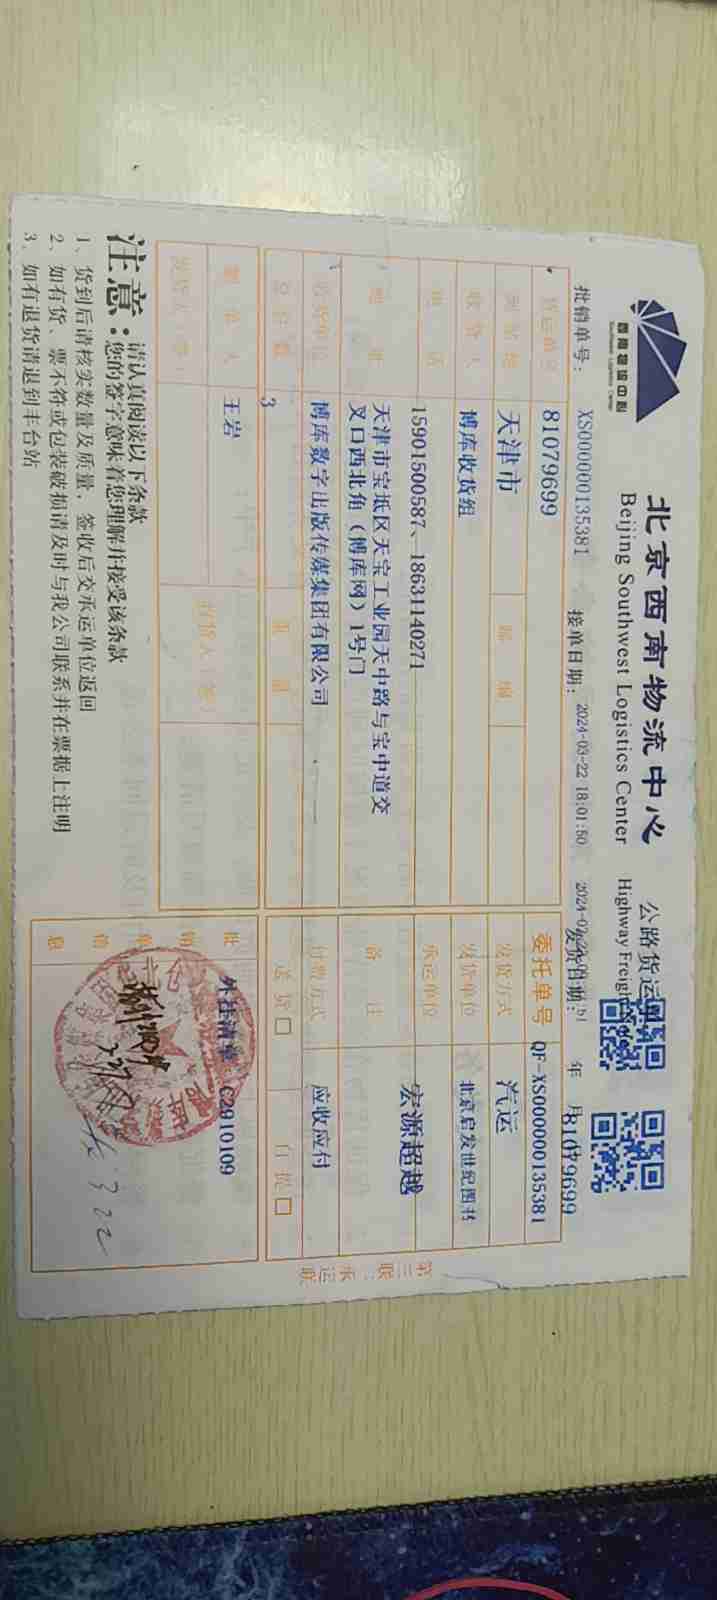 西南物流中心
Southwest Logistics Center
北京西南物流中心
Beijing Southwest Logistics Center
公路货运
Highway Freight
批销单号： XS000000135381
接单日期： 2024-03-22 18:01:50
发货日期：
年 月
81079699
货运单号 81079699
委托单号 QF-XS000000135381
到站地 天津市 邮编
发货方式 汽运
收货人 博库收货组
发货单位 北京启发世纪图书
电话 15901500587、18631140271
承运单位 宏源超越
地址 天津市宝坻区天宝工业园天中路与宝中道交
叉口西北角（博库网）1号门
备注
收货单位 博库数字出版传媒集团有限公司
付费方式 应收应付
总件数 3 重量
送货□ 自提□
制单人 王岩
批销单信息 外挂清单 C2910109
发货人（签） 收货人（签）
3 22
注意：
请认真阅读以下条款
您的签字意味着您理解并接受该条款
1、货到后请核实数量及质量，签收后交承运单位返回
2、如有货、票不符或包装破损请及时与我公司联系并在票据上注明
3、如有退货请退到丰台站
第三联：承运联